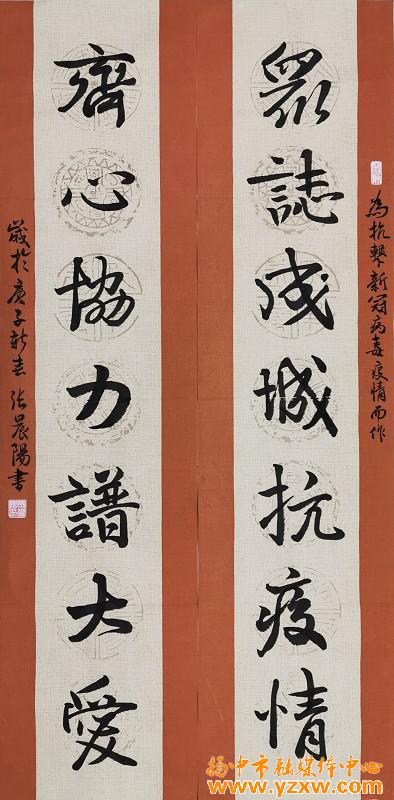 為抗擊新冠病毒疫情而作
眾誌成城抗疫情
齊心協力譜大愛
歲於庚子新春 張晨陽書
扬中市融媒体中心
www.yzxw.com